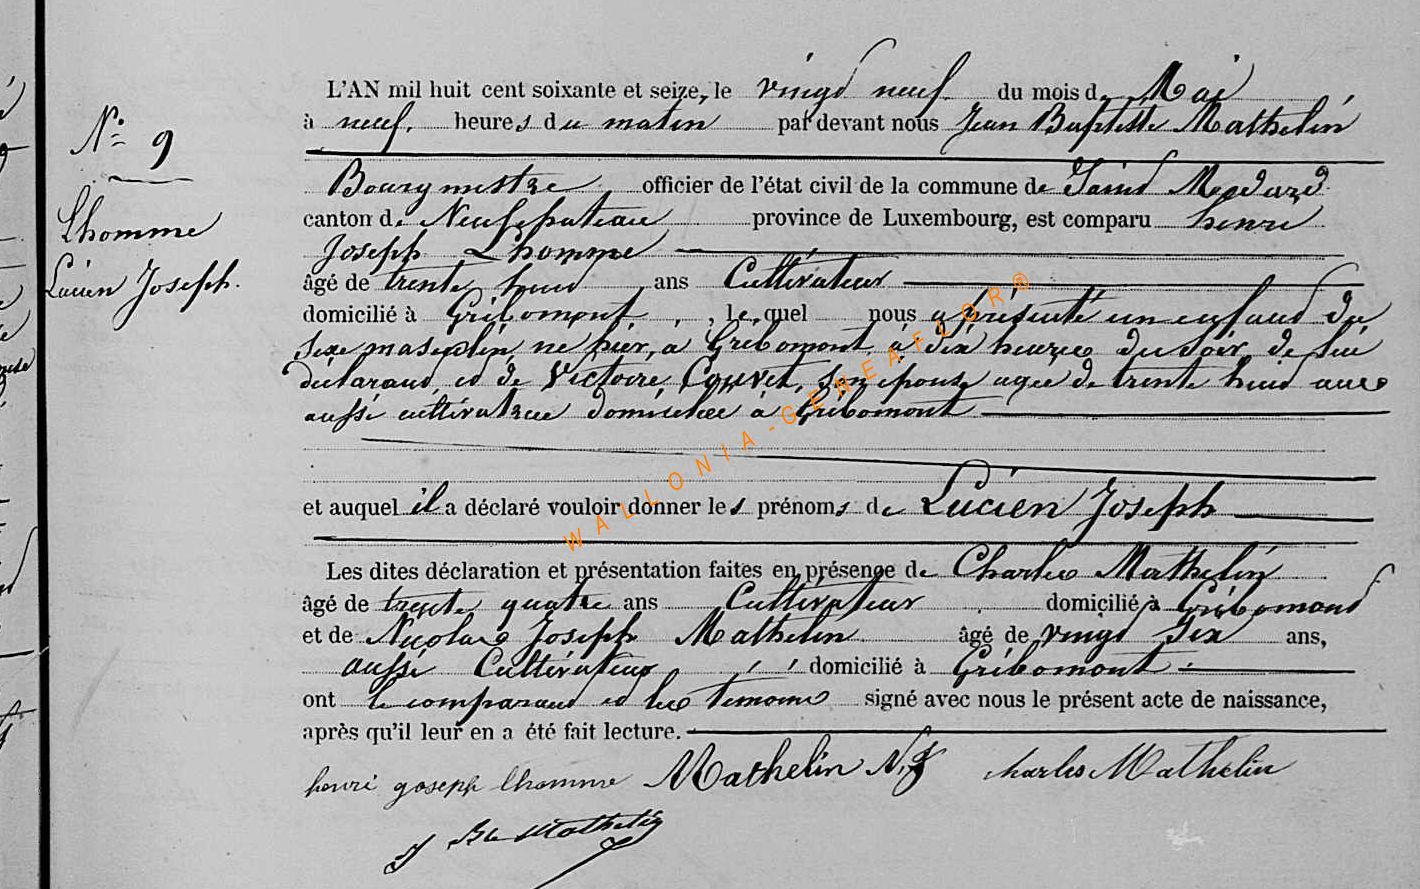 N° 9
Lhomme
Lucien Joseph.
L'AN mil huit cent soixante et seize, le vingd neuf du mois de Mai
à neuf heures du matin par devant nous Jean Baptiste Mathelin
Bourgmestre officier de l'état civil de la commune de Saind Medard
canton de Neufchateau province de Luxembourg, est comparu henri
Joseph Lhomme
âgé de trente ans Cultivateur
domicilié à Gribomont, lequel nous a présenté un enfand du
sexe masculin, né hier, a Gribomont, à dix heures du soir, de lui
déclarand, ed de Victoire Couvet, son epouse agee de trente huid ans
aussi cultivatrice domiciliee à Gribomont
et auquel il a déclaré vouloir donner les prénoms de Lucien Joseph
Les dites déclaration et présentation faites en présence de Charles Mathelin
âgé de trente quatre ans Cultivateur domicilié à Gribomond
et de Nicolas Joseph Mathelin âgé de vingd six ans,
aussi Cultivateur domicilié à Gribomont
ont le comparand ed les témoins signé avec nous le présent acte de naissance,
après qu'il leur en a été fait lecture.
henri goseph lhomme Mathelin N.J charles Mathelin
J Bte Mathelin
WALLONIA-GENEAFLOR®